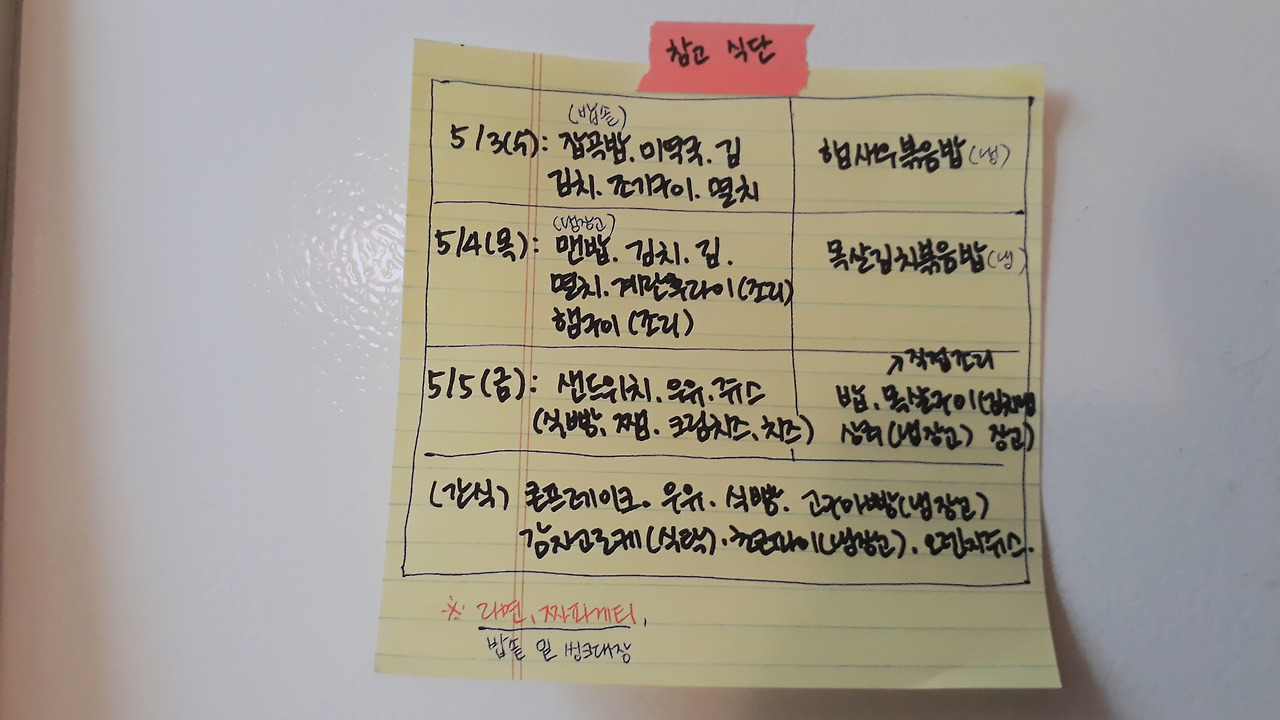 참고 식단
(밥솥)
5/3(수): 잡곡밥. 미역국. 김
김치. 조기구이. 멸치
햄새우볶음밥(냉)
(냉장고)
5/4(목): 맨밥. 김치. 김.
멸치. 계란후라이(조리)
햄구이 (조리)
목살김치볶음밥(냉)
5/5(금): 샌드위치. 우유. 쥬스
(식빵, 쨈. 크림치즈, 치즈)
↗직접조리
밥. 목살구이(김치냉
상추(냉장고) 장고)
(간식) 콘프레이크. 우유. 식빵. 고구마빵(냉장고)
감자고로케(식탁). (냉장고). 오렌지쥬스.
※ 라면, 짜파게티,
밥솥 밑 씽크대장